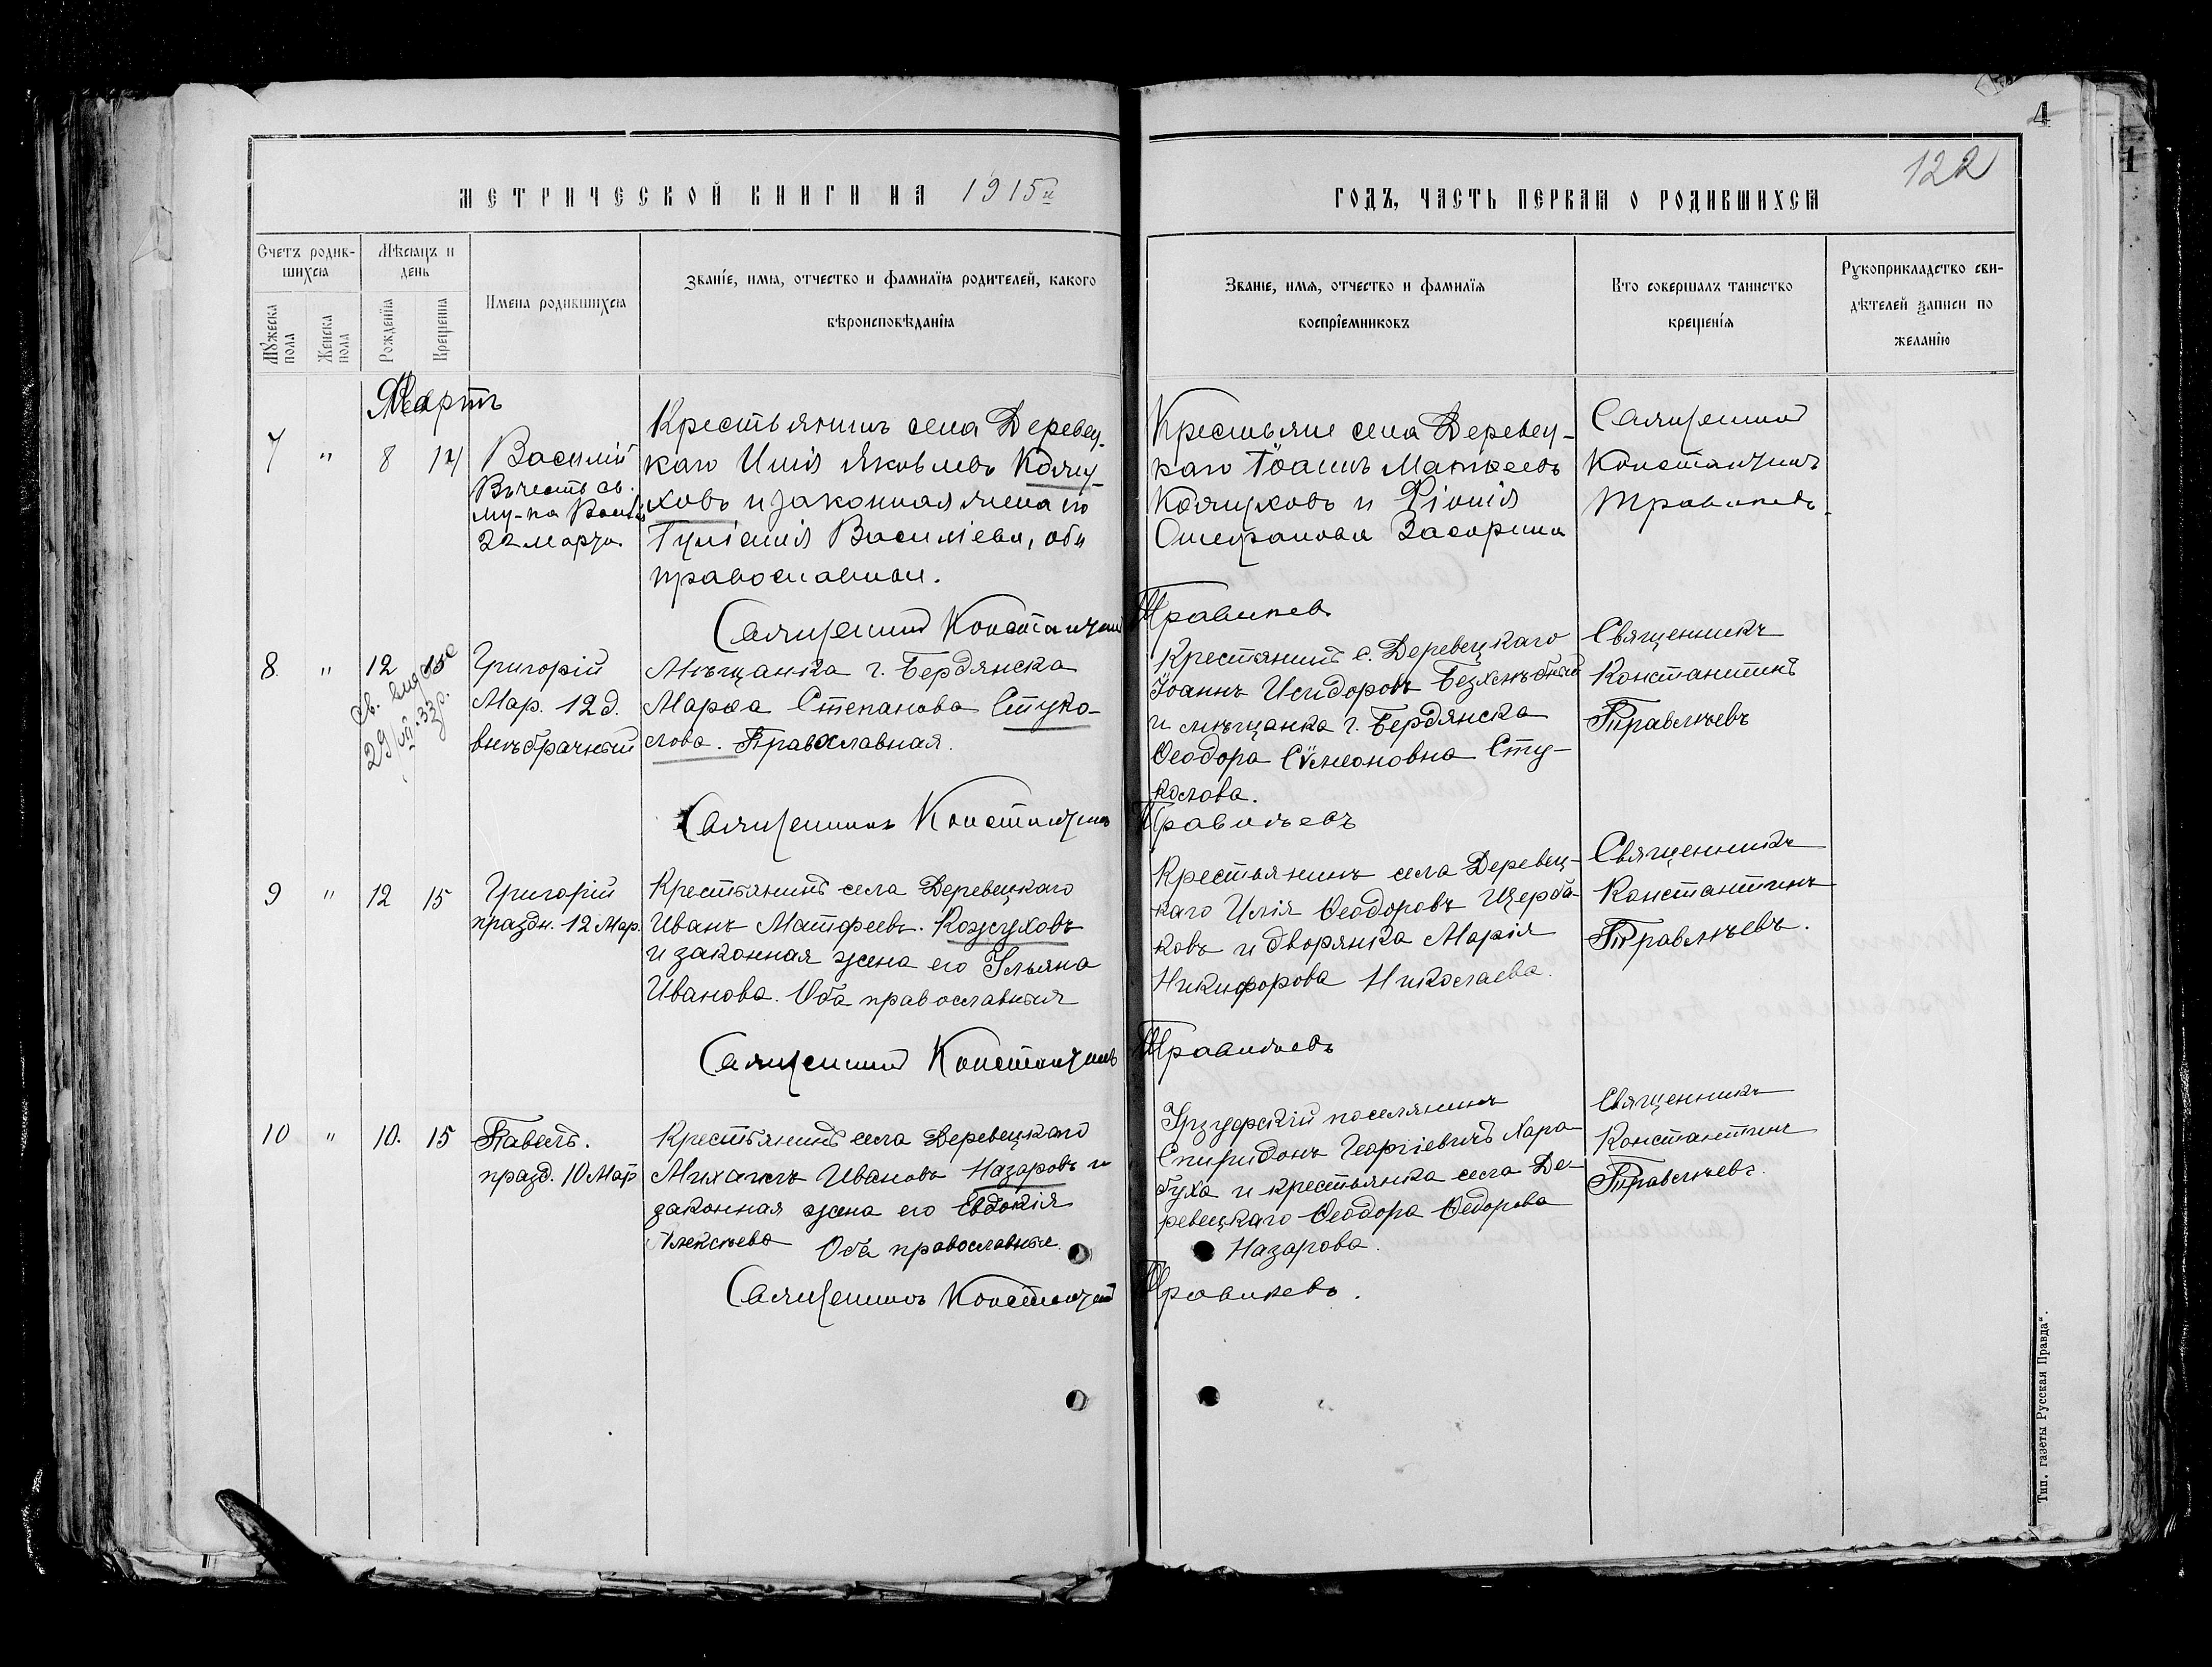 4
122
1
МЕТРИЧЕСКОЙ КНИГИ НА 1915й
ГОДЪ, ЧАСТЬ ПЕРВАЯ О РОДИВШИХСЯ
Счетъ родив-
шихся
Мѣсяцъ и
день
Мужеска
пола
Женска
пола
Рожденія
Крещенія
Имена родившихся
Званіе, имя, отчество и фамилія родителей, какого
вѣроисповѣданія
Званіе, имя, отчество и фамилія
воспріемниковъ
Кто совершалъ таинство
крещенія
Рукоприкладство сви-
дѣтелей записи по
желанію
Мартъ
7 " 8 14
Василій
Въ честь св.
22 марта
Крестьянинъ села Деревец-
каго Илія Яковлевъ Кожу-
ховъ и законная жена его
Василіева, оба
православные.
Крестьяне села Деревец-
каго Іоаннъ Матѳеевъ
Кожуховъ и
Стефанова
Священникъ
Константинъ
Травлѣевъ.
Священникъ Константинъ Травлѣевъ
8. " 12 15
29/VII.33г.
Григорій
Мар. 12 д.
внѣбрачный
Мѣщанка г. Бердянска
Марѳа Степанова Стуко-
лова. Православная.
Крестянинъ с. Деревецкаго
Іоаннъ Исидоровъ
и мѣщанка г. Бердянска
Ѳеодора Сѵмеоновна Сту-
колова.
Священникъ
Константинъ
Травлѣевъ
Священникъ Константинъ Травлѣевъ
9 " 12 15
Григорій
праздн. 12 Мар.
Крестьянинъ села Деревецкаго
Иванъ Матфеевъ. Кожуховъ
и законная жена его Ульяна
Иванова. Оба православныя
Крестьянинъ села Деревец-
каго Илія Ѳеодоровъ Щерба-
ковъ и дворянка Марія
Никифорова Николаева.
Священникъ
Константинъ
Травлѣевъ.
Священникъ Константинъ Травлѣевъ
10 " 10. 15
Павелъ.
празд. 10 Мар
Крестьянинъ села Деревецкаго
Михаилъ Ивановъ Назаровъ и
законная жена его Евдокія
Алексѣева Оба православные.
Урзуфскій поселянинъ
Спиридонъ Георгіевичъ Хара-
буха и крестьянка села Де-
ревецкаго Ѳеодора Ѳедорова
Назарова.
Священникъ
Константинъ
Травлѣевъ.
Священникъ Константинъ Травлѣевъ.
Тип. газеты Русская Правда".